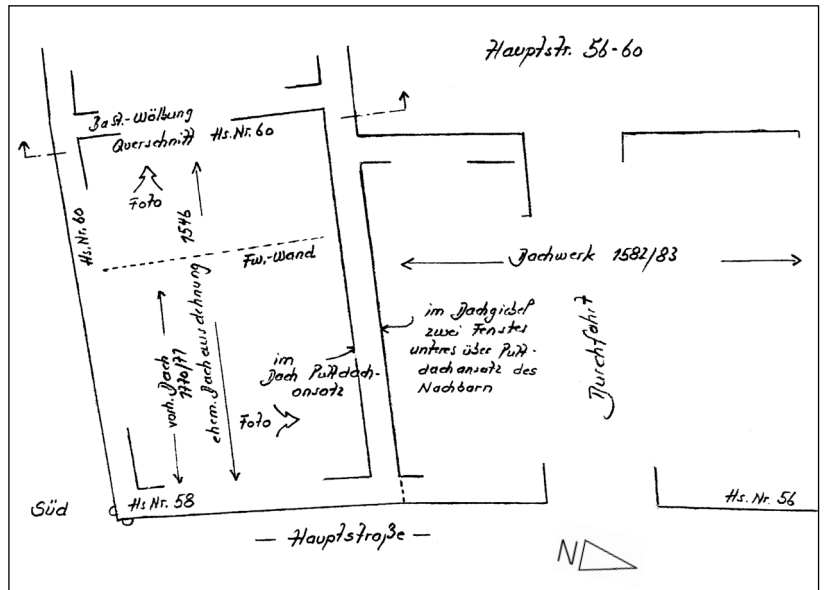 Hauptstr. 56-60
Bast.-Wölbung
Querschnitt Hs.Nr. 60
Foto
Hs.Nr. 60
1546
Fw.-Wand
Dachwerk 1582/83
vorh. Dach
1770/71
ehem. Dachausdehnung
im
Dach Pultdach-
ansatz
Foto
im Dachgiebel
zwei Fenster
unteres über Pult-
dachansatz des
Nachbarn
Durchfahrt
Süd
Hs Nr. 58
Hs. Nr. 56
— Hauptstraße —
N